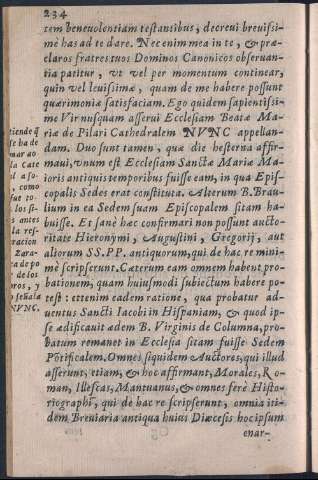 234
tem beneuolentiam testantibus, decreui breuissi-
mè has ad te dare. Nec enim mea in te, & præ-
claros fratres tuos Dominos Canonicos obseruan-
tia patitur, vt vel per momentum continear,
quin vel leuissimæ, quam de me habere possunt
quærimoniæ satisfaciam. Ego quidem sapientissi-
me Vir nusquam asserui Ecclesiam Beatæ Ma-
riæ de Pilari Cathedralem NVNC appellan-
dam. Duo sunt tamen, quæ die hesterna affir-
maui, vnum est Ecclesiam Sanctæ Mariæ Ma-
ioris antiquis temporibus fuisse eam, in qua Epis-
copalis Sedes erat constituta. Alterum B. Brau-
lium in ea Sedem suam Episcopalem sitam ha-
buisse. Et sanè hac confirmari non possunt aucto-
ritate Hieronymi, Augustini, Gregorij, aut
aliorum SS. PP. antiquorum, qui de hac re mini-
mè scripserunt. Cæterum eam omnem habent pro-
bationem, quam huiusmodi subiectum habere po-
test: etenim eadem ratione, qua probatur ad-
uentus Sancti Iacobi in Hispaniam, & quod ip-
se ædificauit ædem B. Virginis de Columna, pro-
batum remanet in Ecclesia sitam fuisse Sedem
Põtificalem. Omnes siquidem Auctores, qui illud
asserunt, etiam, & hoc affirmant, Morales, Ro-
man, Illescas, Mantuanus, & omnes ferè Histo-
riographi, qui de hac re scripserunt, omnia iti-
dem Breuiaria antiqua huius Diœcesis hoc ipsum
enar-
tiende q̃
se ha de
mar ao
la Cate
l a so
, como
fue to
los si-
s antes
la res-
racion
Zara-
a de po
de los
ros, y
señala
NVNC.